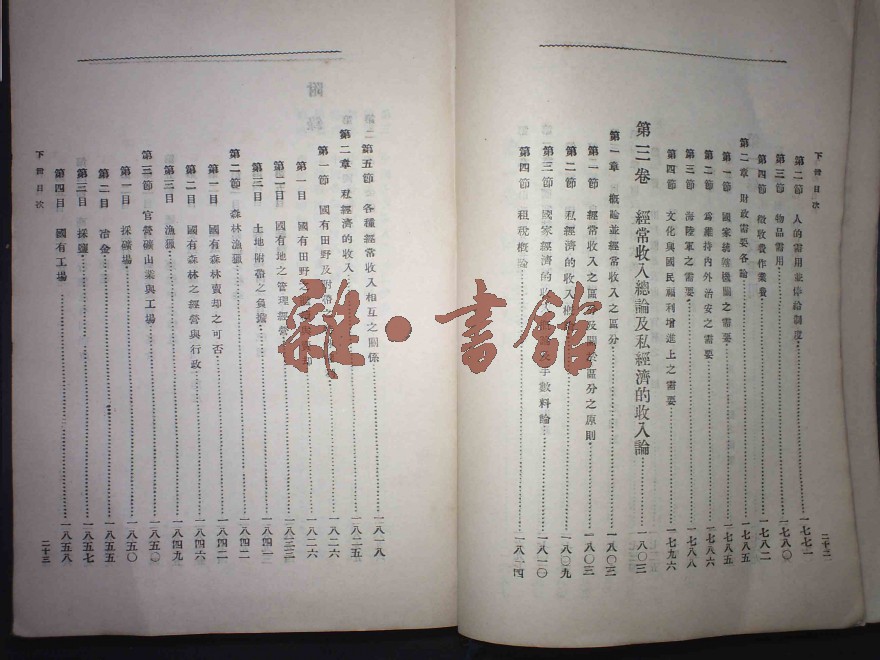 下冊目次
二十二
第二節 人的需用兼俸給制度 一七七一
第三節 物品需用 一七八〇
第四節 徵收費作業費 一七八二
第二章 財政需要各論 一七八五
第一節 國家統轄機關之需要 一七八五
第二節 爲維持內外治安之需要 一七八六
第三節 海陸軍之需要 一七八八
第四節 文化與國民福利增進上之需要 一七九六
第三卷 經常收入總論及私經濟的收入論 一八〇三
第一章 概論並經常收入之區分 一八〇三
第一節 經常收入之區分及關於區分之原則 一八〇三
第二節 私經濟的收入概 一八〇九
第三節 國家經濟的收 手數料論 一八一〇
第四節 租稅概論 一八一四
第五節 各種經常收入相互之關係 一八一八
第二章 私經濟的收入 一八二五
第一節 國有田野及附帶之 一八二六
第一目 國有田野之 一八二六
第二目 國有地之管理經營 一八三三
第三目 土地附帶之負擔 一八四一
第二節 森林漁獵 一八四二
第一目 國有森林賣却之可否 一八四二
第二目 國有森林之經營與行政 一八四六
第三目 漁獵 一八四九
第三節 官營礦山業與工場 一八五〇
第一目 採礦場 一八五〇
第二目 冶金 一八五五
第三目 採鹽 一八五七
第四目 國有工場 一八五八
下冊目次
二十三
雜·書館